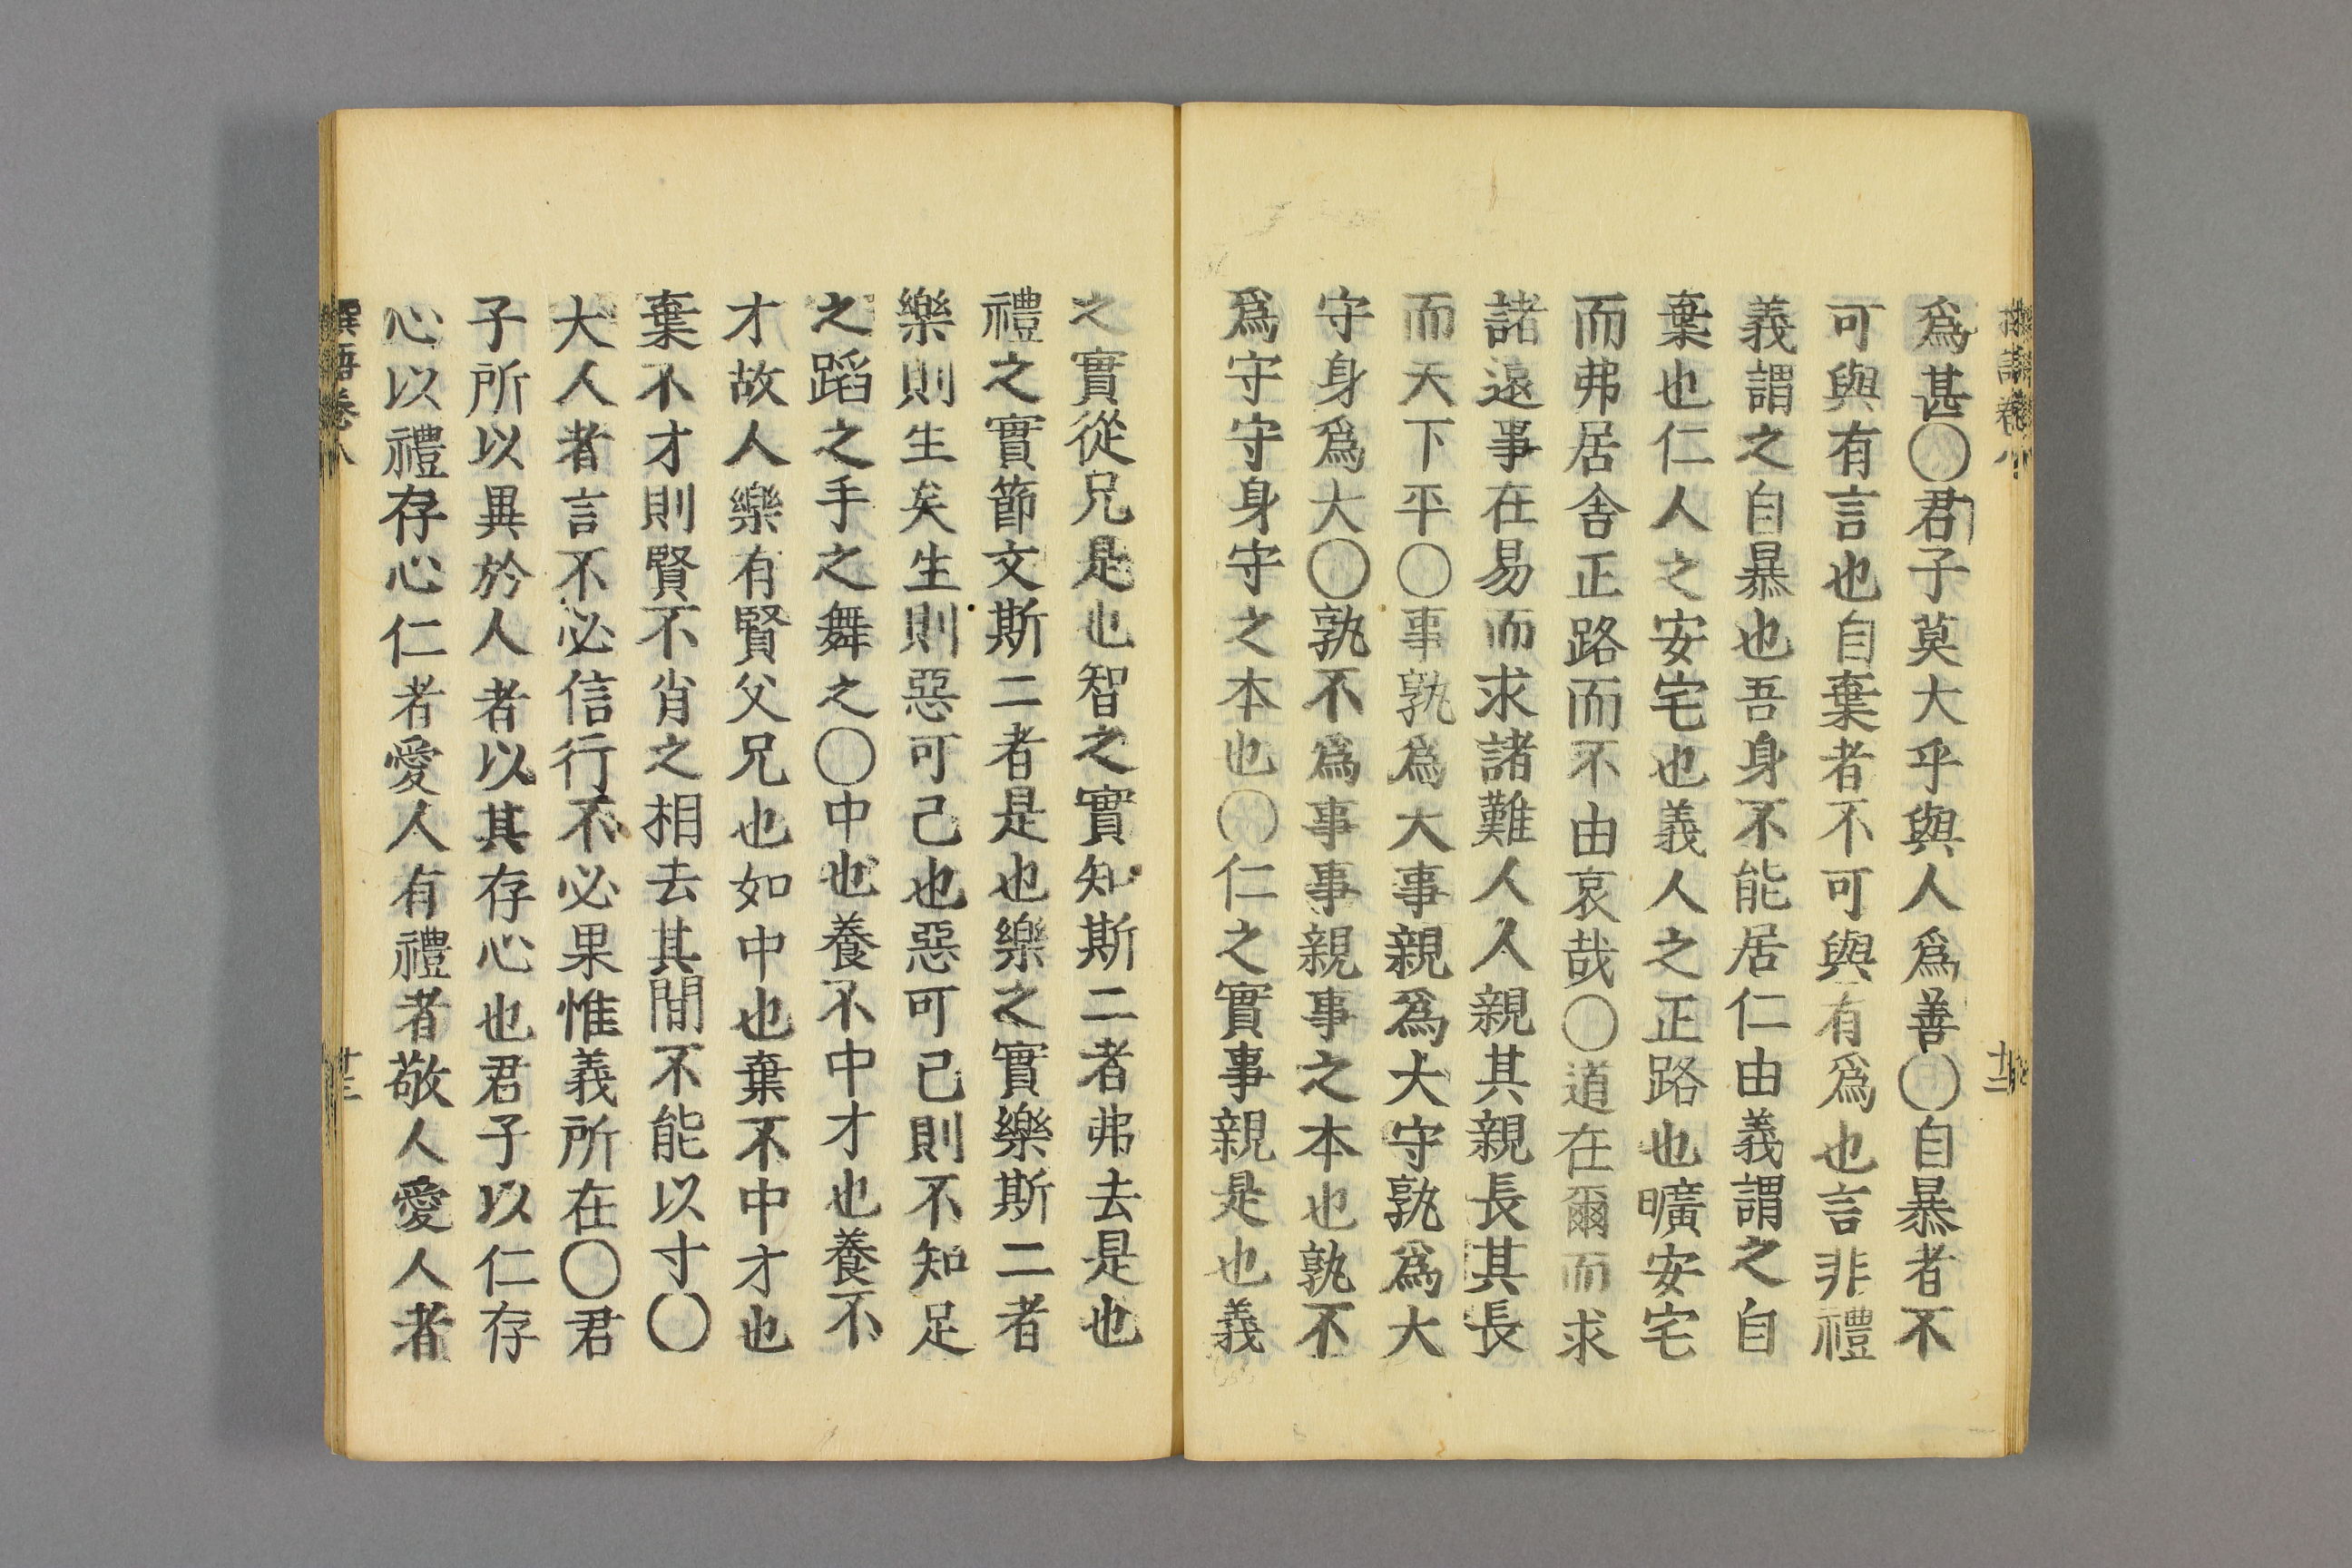 爲甚〇君子莫大乎與人爲善〇自暴者不
可與有言也自棄者不可與有爲也言非禮
義謂之自暴也吾身不能居仁由義謂之自
棄也仁人之安宅也義人之正路也曠安宅
而弗居舍正路而不由哀哉〇道在爾而求
諸遠事在易而求諸難人人親其親長其長
而天下平〇事孰爲大事親爲大守孰爲大
守身爲大〇孰不爲事事親事之本也孰不
爲守守身守之本也〇仁之實事親是也義
之實從兄是也智之實知斯二者弗去是也
禮之實節文斯二者是也樂之實樂斯二者
樂則生矣生則惡可己也惡可己則不知足
之蹈之手之舞之〇中也養不中才也養不
才故人樂有賢父兄也如中也棄不中才也
棄不才則賢不肖之相去其閒不能以寸〇
大人者言不必信行不必果惟義所在〇君
子所以異於人者以其存心也君子以仁存
心以禮存心仁者愛人有禮者敬人愛人者
語卷八 十三